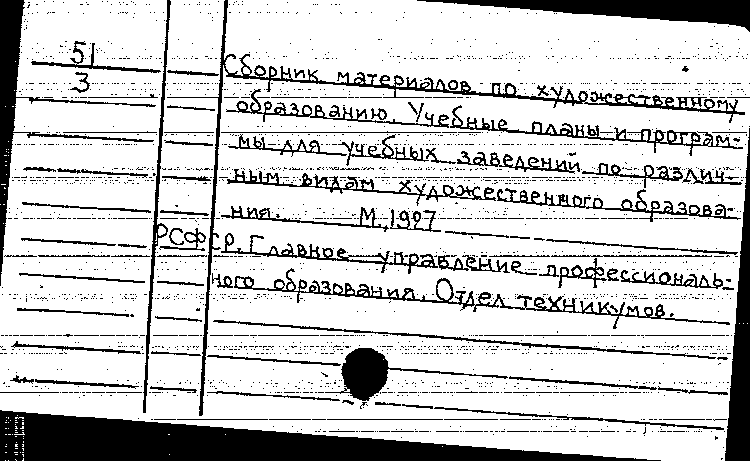 51
3
Сборник материалов по художественному
образованию. Учебные планы и програм-
мы для учебных заведений по различ-
ным видам художественного образова-
ния. М., 1927
РСФСР. Главное управление профессиональ-
ного образования. Отдел техникумов.